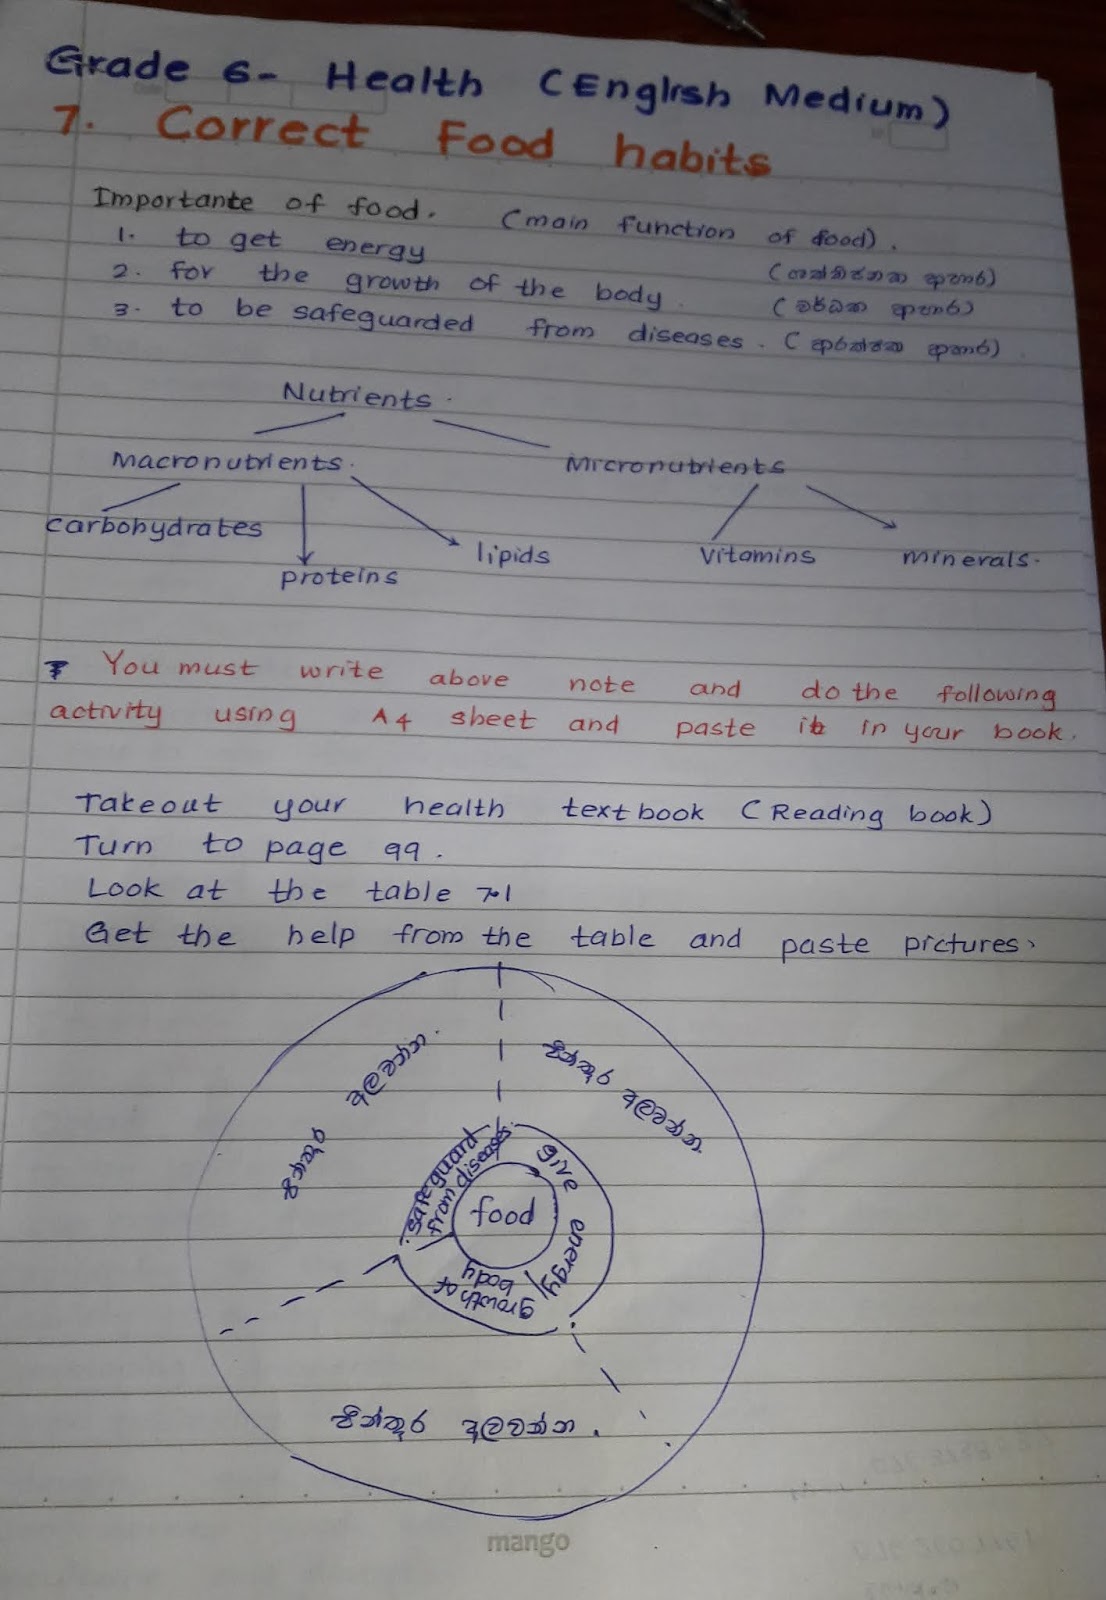 Grade 6- Health (English Medium)
7. Correct Food habits
Importante of food. (main function of food).
1. to get energy (ශක්තිජනක ආහාර)
2. for the growth of the body. (වර්ධක ආහාර)
3. to be safeguarded from diseases. (ආරක්ෂක ආහාර)
Nutrients.
Macronutrients. Micronutrients
carbohydrates proteins lipids vitamins minerals.
You must write above note and do the following
activity using A4 sheet and paste it in your book.
Takeout your health textbook (Reading book)
Turn to page 99.
Look at the table 7.1
Get the help from the table and paste pictures.
පින්තූර අලවන්න.
පින්තූර අලවන්න
safeguard from diseases.
give energy
food
growth of body
පින්තූර අලවන්න.
mango